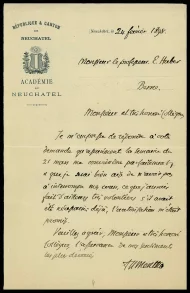 RÉPUBLIQUE & CANTON
DE
NEUCHATEL
ACADÉMIE
DE
NEUCHATEL
Neuchâtel, le 24 février 1898.
Monsieur le professeur E.
Berne.
Monsieur et très honoré Collègue,
Je m'empresse de répondre à votre
demande que la semaine du
21 mars me conviendra parfaitement
que je serai bien aise de n'avoir pas
à interrompre mes cours, ce que j'aurais
fait d'ailleurs très volontiers s'il avait
été nécessaire déjà, l'autorisation m'étant
Veuillez agréer, Monsieur et très honoré
Collègue, l'expression de mes sentiments
les plus dévoués